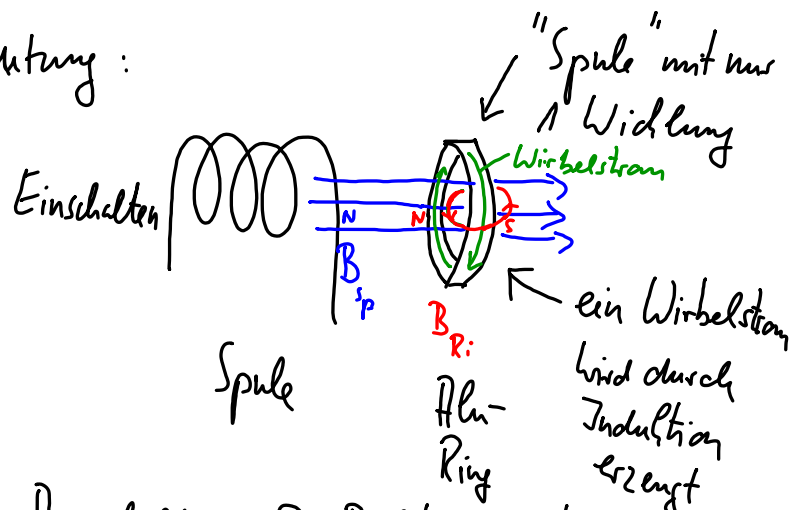 "Spule" mit nur
1 Wicklung
Wirbelstrom
Einschalten
N
N
S
B
Sp
B
Ri
ein Wirbelstrom
wird durch
Induktion
erzeugt
Spule
Alu-
Ring